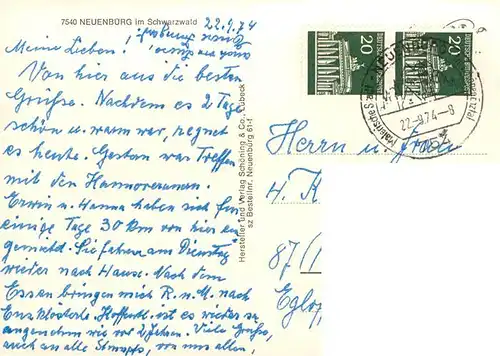 7540 NEUENBÜRG im Schwarzwald
22.9.74
Meine Lieben!
Von hier aus die besten
Grüße. Nachdem es 2 Tage
schön u. warm war, regnet
es heute. Gestern war Treffen
mit den Hannoveranern.
Erwin u. Hanna haben sich für
einige Tage 30 km von hier ein
gemietet. Sie fahren am Dienstag
wieder nach Hause. Nach dem
Essen bringen mich R. u. M. nach
Enzklösterle. Hoffentl. ist es wieder so
angenehm wie vor 2 Jahren. Viele Grüße,
auch an alle von uns allen,
Hersteller und Verlag Schöning & Co., Lübeck
sz Bestellnr. Neuenbürg 61-f
DEUTSCHE BUNDESPOST
20
20
NEUENBÜRG
22.-9.74.-8
Herrn u. Frau
4. K
87 /
Eglo